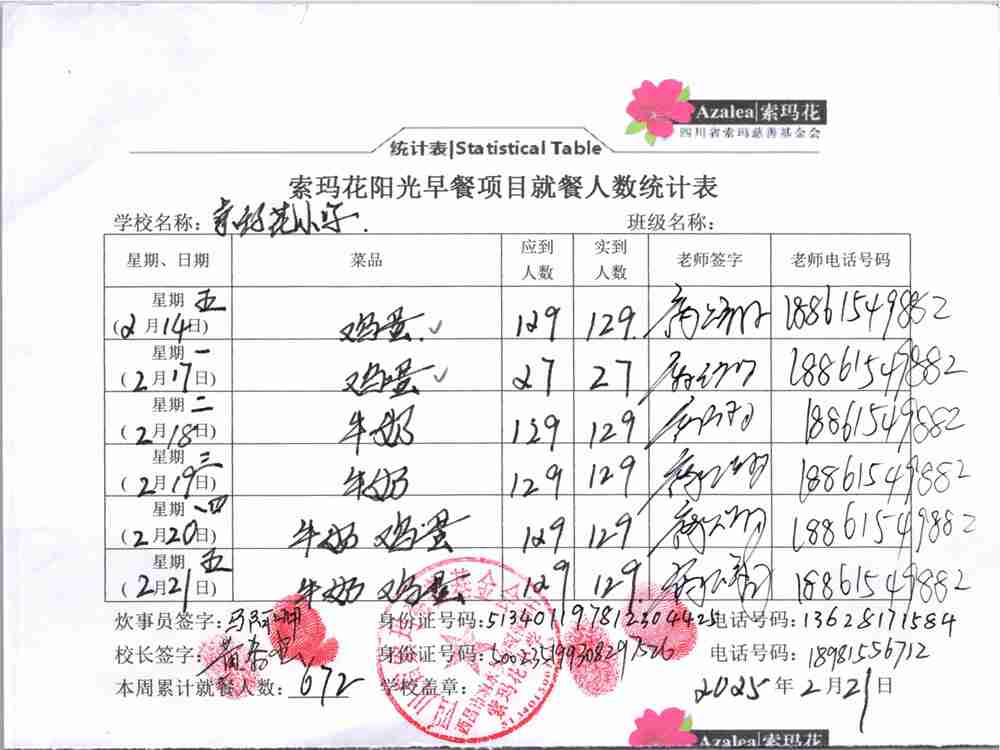 Azalea|索玛花
四川省索玛慈善基金会
统计表|Statistical Table
索玛花阳光早餐项目就餐人数统计表
学校名称：索玛花小学. 班级名称：
星期、日期 菜品 应到人数 实到人数 老师签字 老师电话号码
星期五 (2月14日) 鸡蛋 129 129. 18861549882
星期一 (2月17日) 鸡蛋 27 27 18861549882
星期二 (2月18日) 牛奶 129 129 18861549882
星期三 (2月19日) 牛奶 129 129 18861549882
星期四 (2月20日) 牛奶 鸡蛋 129 129 18861549882
星期五 (2月21日) 牛奶 鸡蛋 129 129 18861549882
炊事员签字： 身份证号码： 电话号码：13628171584
校长签字： 身份证号码： 电话号码：18981556712
本周累计就餐人数：672 学校盖章： 2025年2月21日
Azalea|索玛花